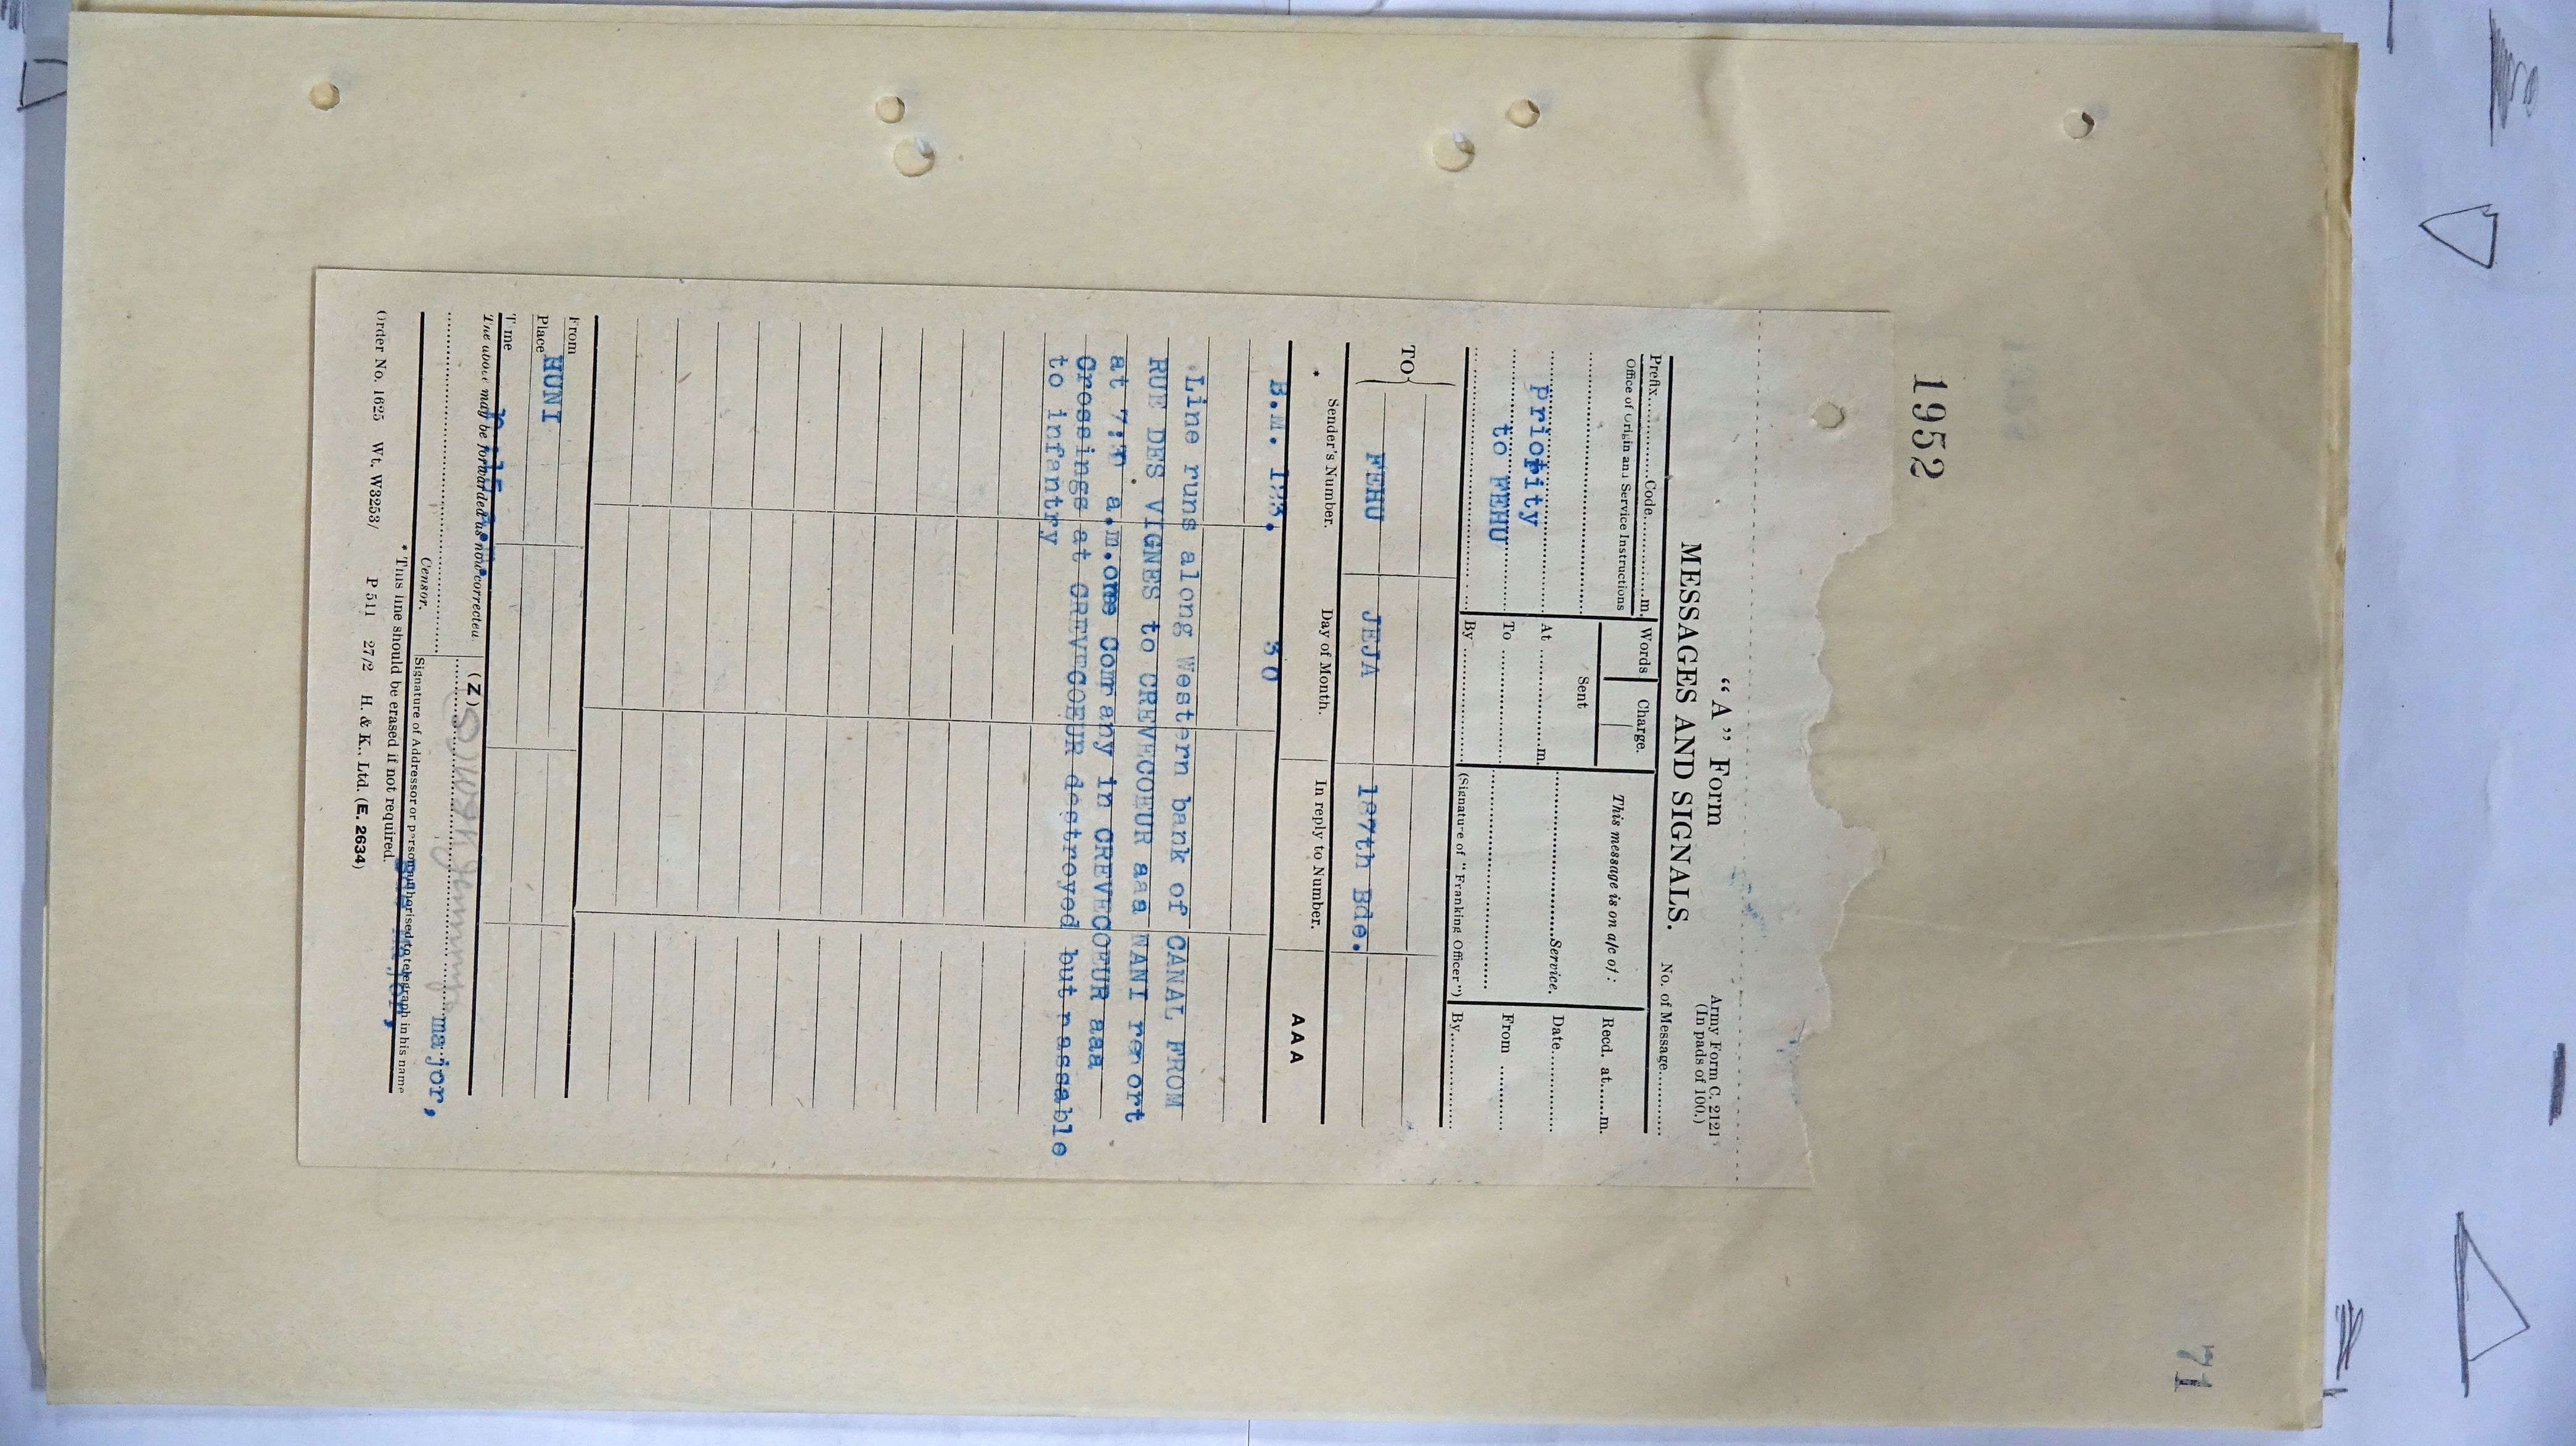 1952
71
"A" Form
Army Form C. 2121
(In pads of 100.)
MESSAGES AND SIGNALS.
No. of Message..........
Prefix..........Code..........m.
Words
Charge.
This message is on a/c of:
Recd. at......m.
Office of Origin and Service Instructions
Sent
Priority
At ..........m.
..........Service.
Date..........
to FEHU
To ..........
From ..........
By ..........
(Signature of "Franking Officer")
By..........
TO
FEHU
JEJA
187th Bde.
*
Sender's Number.
Day of Month.
In reply to Number.
AAA
B.M. 123.
30
Line runs along Western bank of CANAL FROM
RUE DES VIGNES to CREVECOEUR aaa NANI report
a.m. one Company in CREVECOEUR aaa
Crossings at CREVECOEUR destroyed but passable
to infantry
From
Place
HUNI
Time
The above may be forwarded as now corrected.
(Z)
major,
Censor.
Signature of Addressor or person authorised to telegraph in his name
* This line should be erased if not required.
Order No. 1625 Wt. W3253/ P 511 27/2 H. & K., Ltd. (E. 2634)